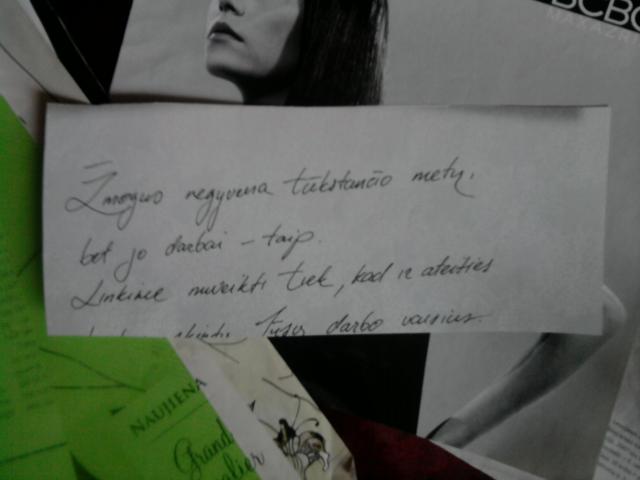 Žmogus negyvena tūkstančio metų,
bet jo darbai – taip.
Linkime nuveikti tiek, kad ir ateities
Jūsų darbo vaisius.
BCBG
NAUJIENA
Grand